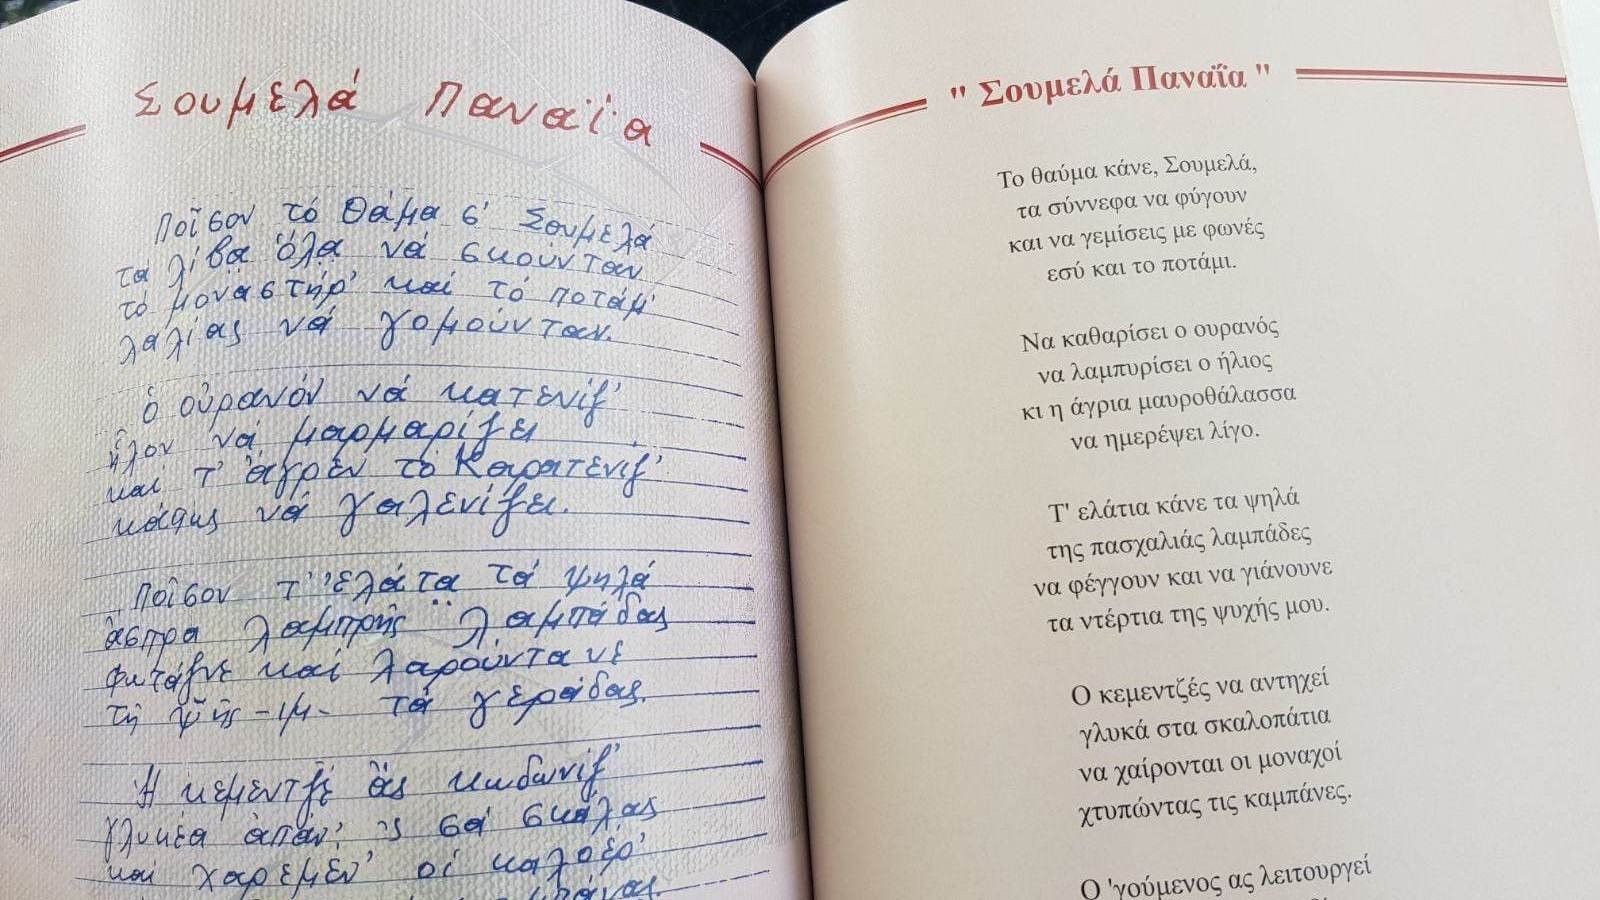 Σουμελά Παναΐα
Ποῖσον τό θάμα σ' Σουμελά
τά λίβα ὅλα νά σκούνταν
τό μοναστήρ' καί τό ποτάμ'
λαλίας νά γομούνταν.
ὁ οὐρανόν νά κατενίζ'
ἥλον νά μαρμαρίζει
καί τ' ἄγρεν τό Καρατενίζ'
κάπως νά γαλενίζει.
Ποῖσον τ' ἐλάτα τά ψηλά
ἄσπρα λαμπρῆς λαμπάδας
φωτάζνε καί λαρούντανε
τῆ ψ̌ῆς -ιμ- τά γεράδας.
Ἡ κεμεντζ̌έ ἄς κωδωνίζ'
γλυκέα ἀπάν' 'ς σά σκάλας
καί χαρεμέν' οἱ καλοέρ'
" Σουμελά Παναΐα "
Το θαύμα κάνε, Σουμελά,
τα σύννεφα να φύγουν
και να γεμίσεις με φωνές
εσύ και το ποτάμι.
Να καθαρίσει ο ουρανός
να λαμπυρίσει ο ήλιος
κι η άγρια μαυροθάλασσα
να ημερέψει λίγο.
Τ' ελάτια κάνε τα ψηλά
της πασχαλιάς λαμπάδες
να φέγγουν και να γιάνουνε
τα ντέρτια της ψυχής μου.
Ο κεμεντζές να αντηχεί
γλυκά στα σκαλοπάτια
να χαίρονται οι μοναχοί
χτυπώντας τις καμπάνες.
Ο 'γούμενος ας λειτουργεί